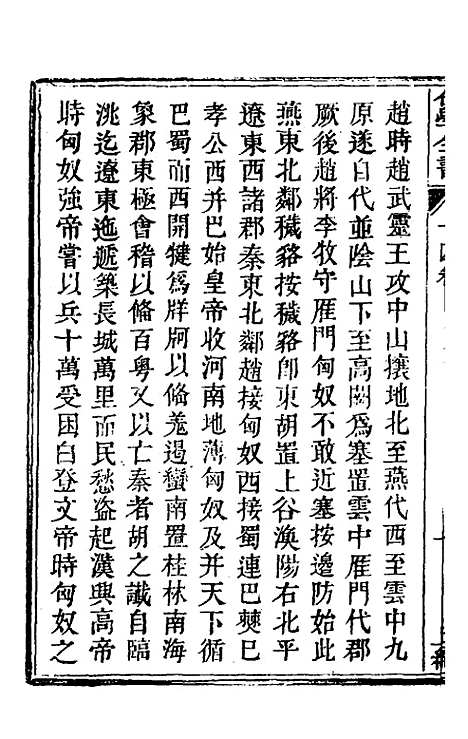 趙時趙武靈王攻中山攘地北至燕代西至雲中九
原遂自代並陰山下至高闕爲塞置雲中雁門代郡
厥後趙將李牧守雁門匈奴不敢近塞按邊防始此
燕東北鄰穢貉按穢貉卽東胡置上谷漁陽右北平
遼東西諸郡秦東北鄰趙接匈奴西接蜀連巴僰巳
孝公西并巴始皇帝收河南地薄匈奴及并天下循
巴蜀而西開犍爲牂牁以偹羗過蠻南置桂林南海
象郡東極會稽以偹百粤又以亡秦者胡之讖自臨
洮迄遼東迤遞築長城萬里而民愁盗起漢興高帝
時匈奴強帝嘗以兵十萬受困白登文帝時匈奴之